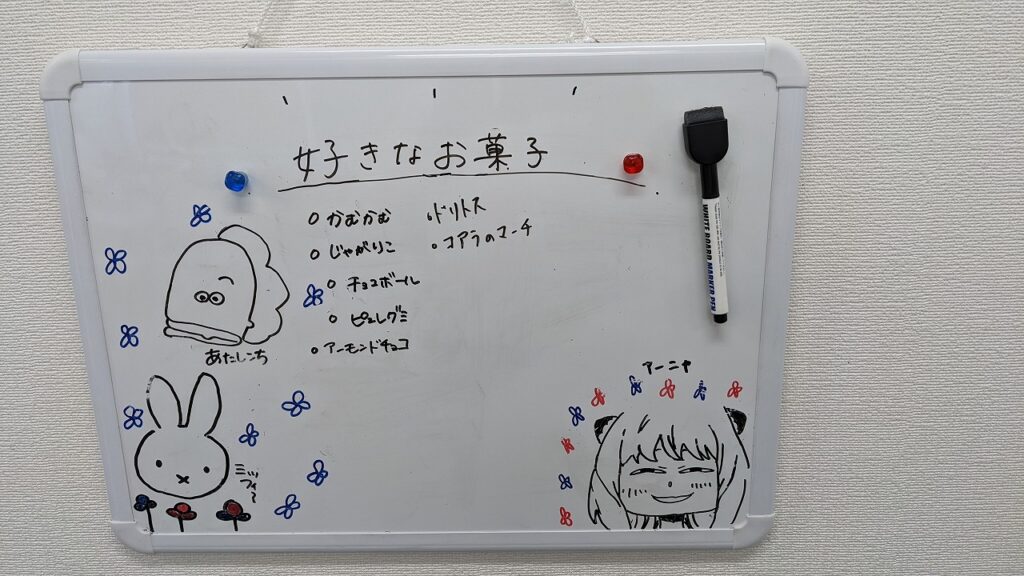 好きなお菓子
○ かむかむ
○ じゃがりこ
○ チョコボール
○ ピュレグミ
○ アーモンドチョコ
・ドリトス
・コアラのマーチ
WHITE BOARD MARKER PEN
あたしンち
ミッフィー
アーニャ